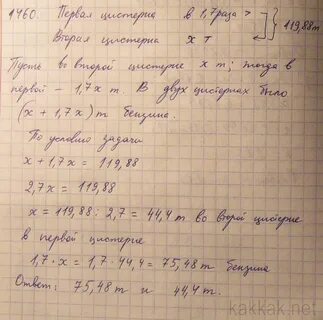 1460. Первая цистерна в 1,7 раза > } 119,88 т
Вторая цистерна x т
Пусть во второй цистерне x т; тогда в
первой – 1,7x т. В двух цистернах было
(x + 1,7x) т бензина.
По условию задачи
x + 1,7x = 119,88
2,7x = 119,88
x = 119,88 : 2,7 = 44,4 т во второй цистерне
в первой цистерне
1,7 · x = 1,7 · 44,4 = 75,48 т бензина
Ответ: 75,48 т и 44,4 т.
kakkak.net